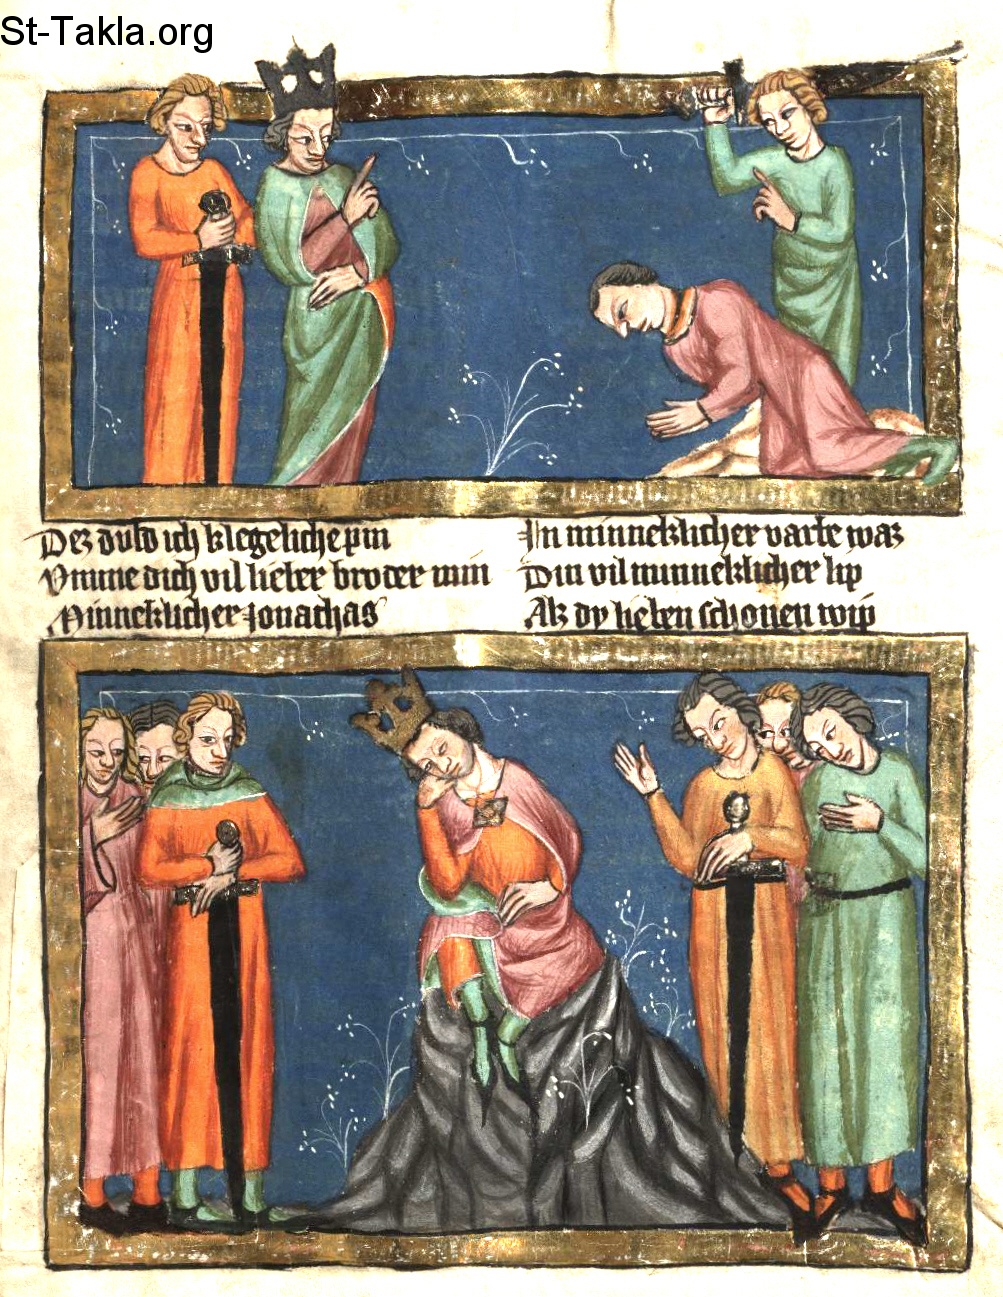 St-Takla.org
Dez duld ich klegeliche pin
Vmme dich vil lieber broder min
Minneklicher Jonathas
In minneklicher varbe waz
Din vil minneklicher lip
Alz dy lieben schonen wip